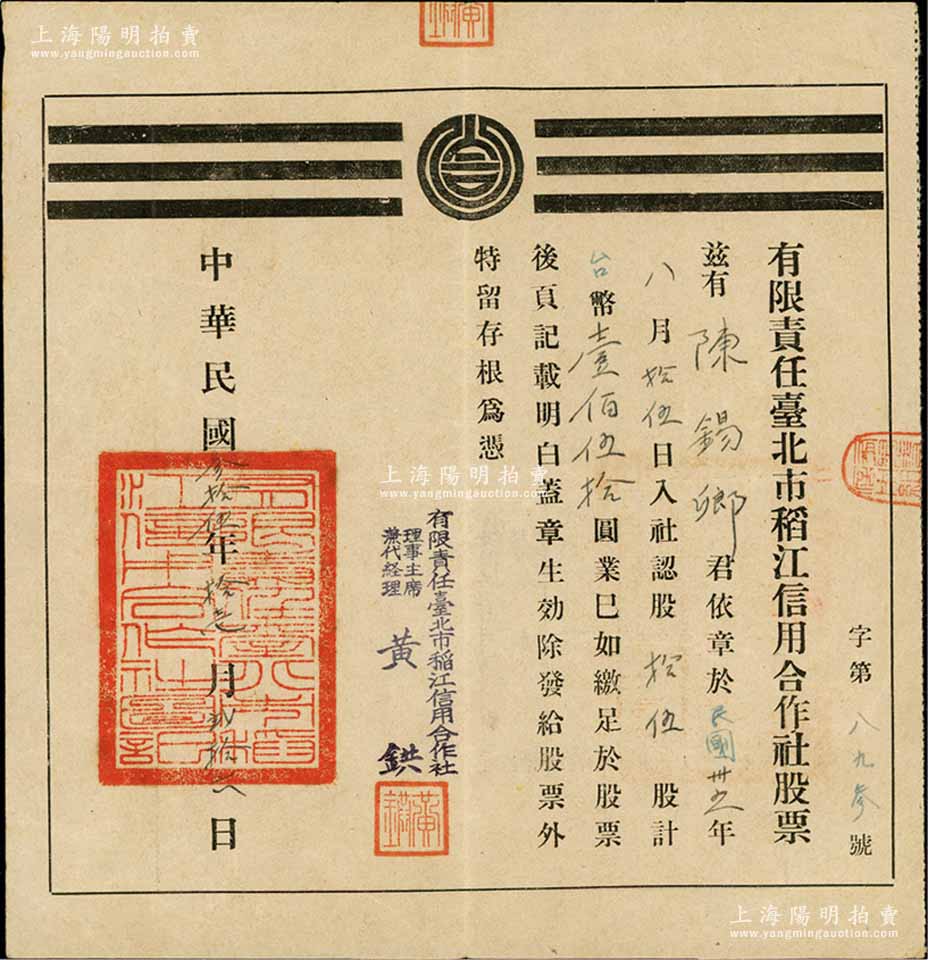 上海陽明拍賣
www.yangmingauction.com
字第八九叁號
有限責任臺北市稻江信用合作社股票
茲有陳錫鄉君依章於民國卅五年
八月拾伍日入社認股拾伍股計
台幣壹佰伍拾圓業已如繳足於股票
後頁記載明白蓋章生効除發給股票外
特留存根爲憑
有限責任臺北市稻江信用合作社
理事主席
兼代經理
黃鉷
黃鉷
中華民國叁拾伍年拾壹月貳拾八日
有限責任臺北市稻江信用合作社圖記
上海陽明拍賣
www.yangmingauction.com
上海陽明拍賣
www.yangmingauction.com